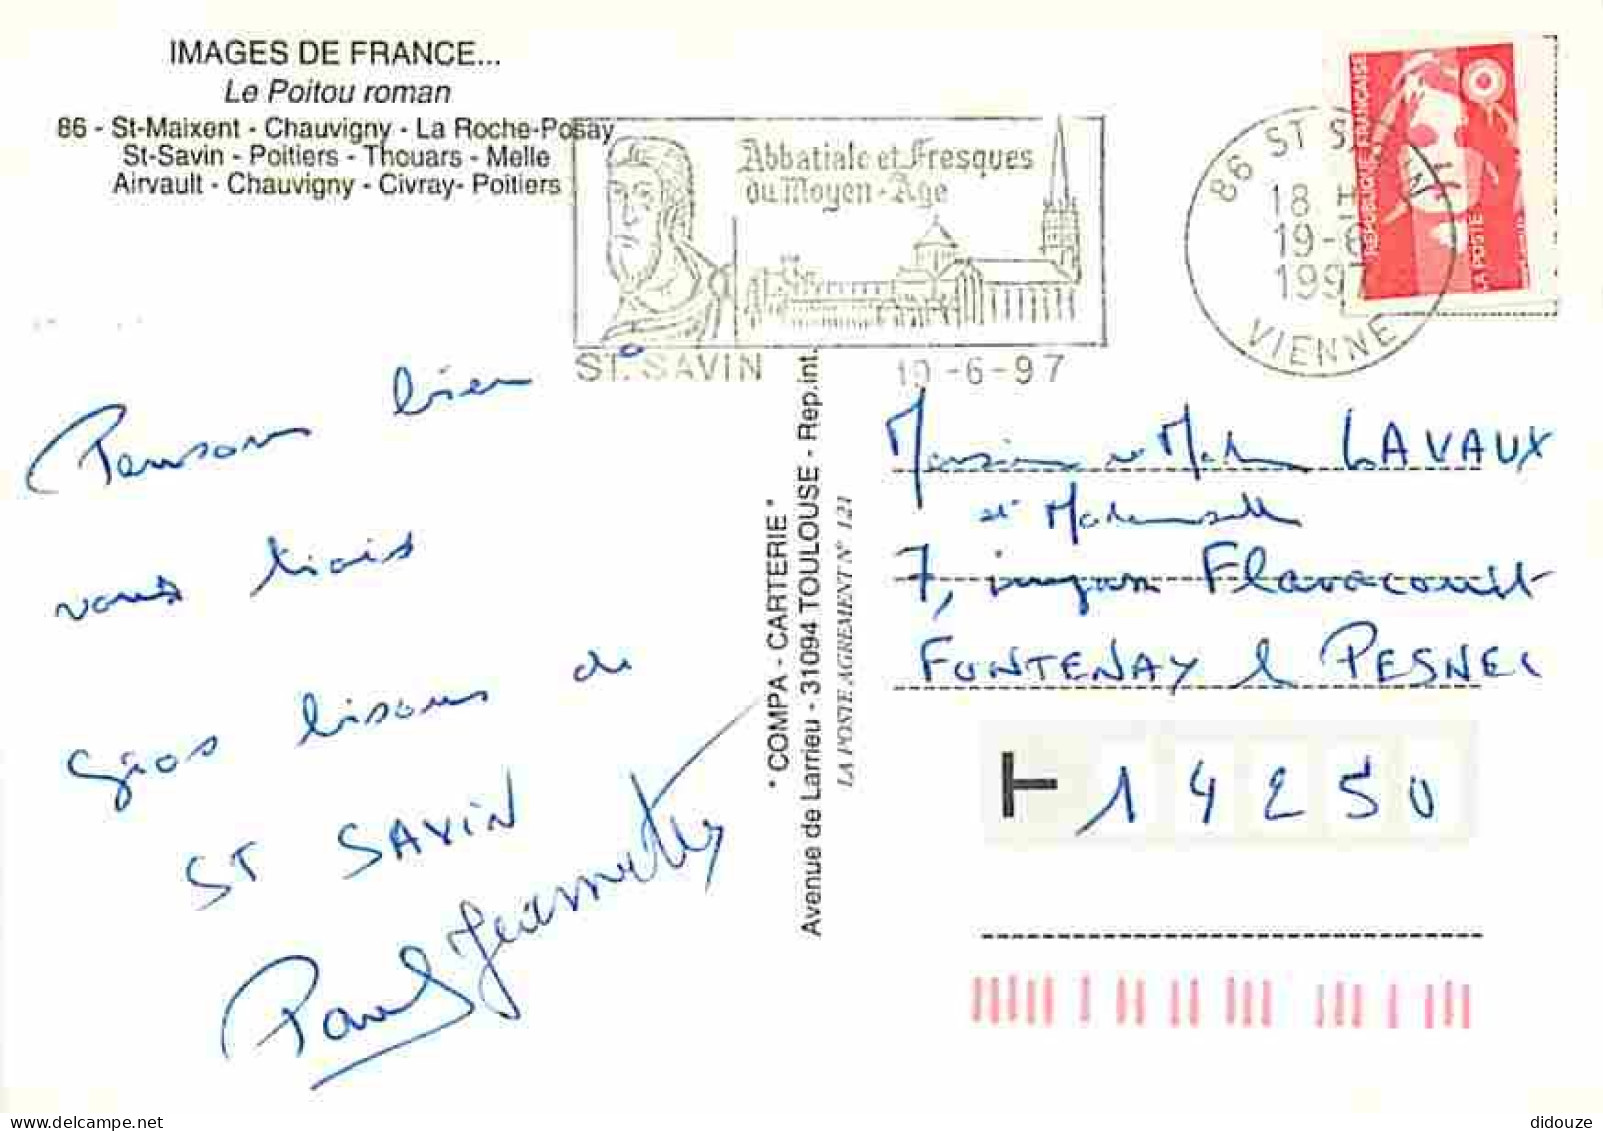 IMAGES DE FRANCE...
Le Poitou roman
86 - St-Maixent - Chauvigny - La Roche-Posay
St-Savin - Poitiers - Thouars - Melle
Airvault - Chauvigny - Civray- Poitiers
Abbatiale et Fresques
du Moyen-Age
ST. SAVIN 19-6-97
86 ST SAVIN
18 H
19-6
1997
VIENNE
REPUBLIQUE FRANCAISE
LA POSTE
Pensons bien à
vous trois
Gros bisous de
ST SAVIN
Paul Jeannette
" COMPA - CARTERIE "
Avenue de Larrieu - 31094 TOULOUSE - Rep.int.
LA POSTE AGREMENT N° 121
LAVAUX
et Mademoiselle
7, impasse Flavacourt
FONTENAY le PESNEL
14250
didouze